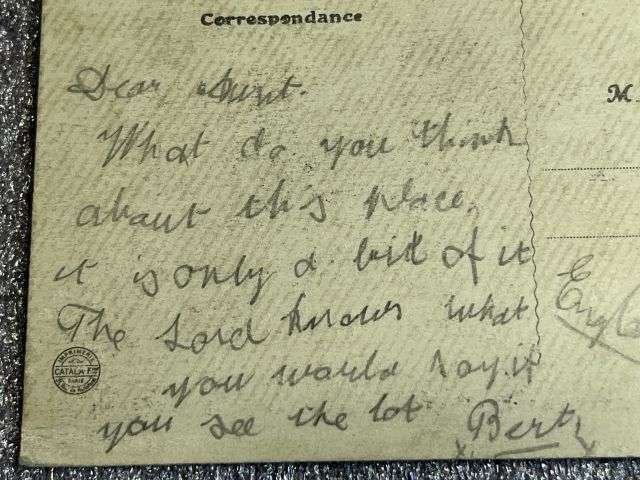 Correspondance
M
Dear Aunt.
What do you think
about this place.
it is only a bit of it
The Lord knows what
you would say if
you see the lot Bert
Engl
IMPRIMERIE
CATALA F.
PARIS